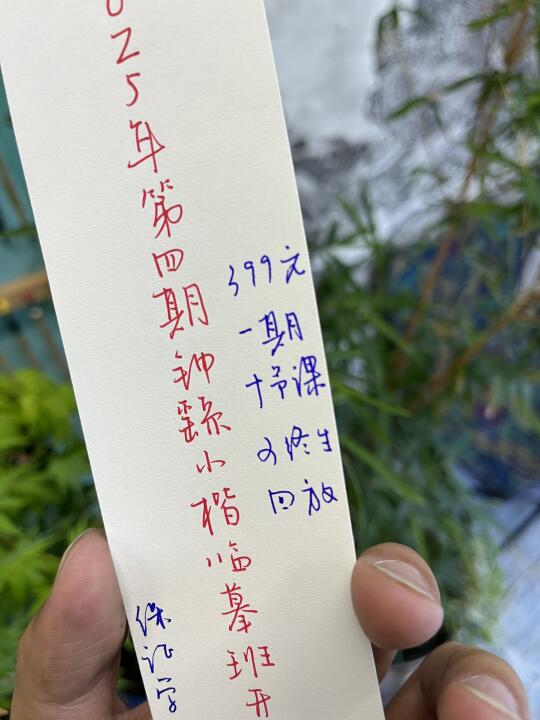 025年第四期钟繇小楷临摹班开
399元
一期
十节课
终生
回放
保证学